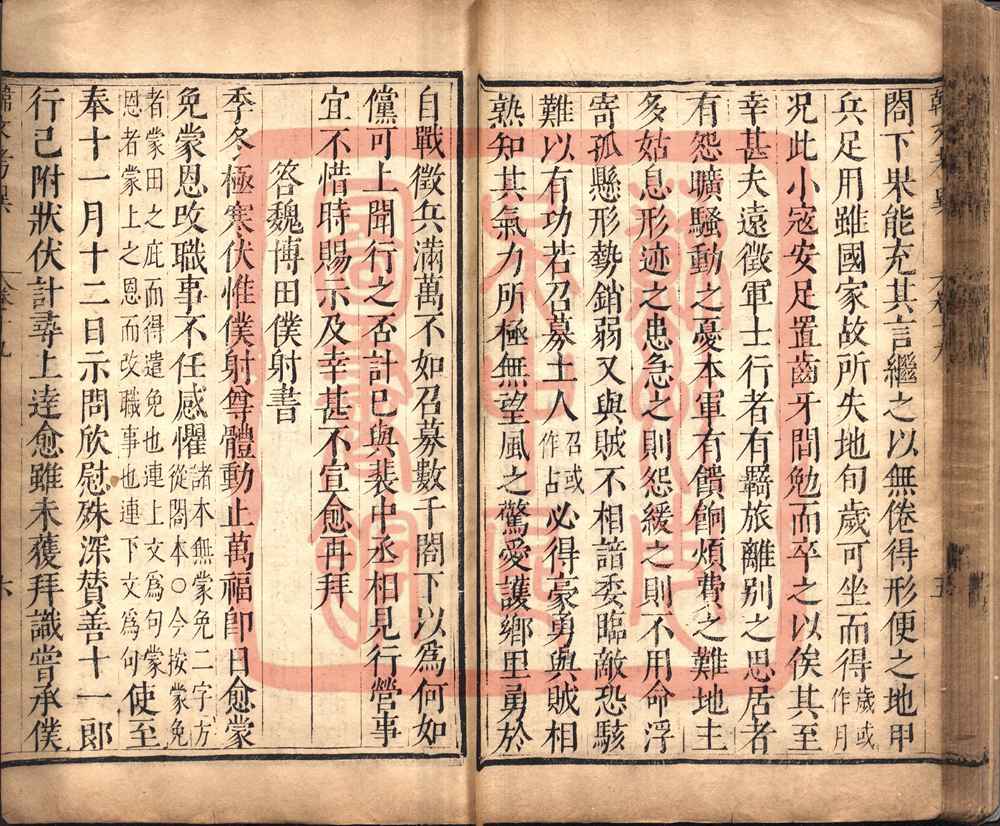 閤下果能充其言繼之以無倦得形便之地甲
兵足用雖國家故所失地旬歲可坐而得歲或作月
况此小冦安足置齒牙間勉而卒之以俟其至
幸甚夫遠徵軍士行者有羇旅離别之思居者
有怨曠騷動之憂本軍有饋餉煩費之難地主
多姑息形迹之患急之則怨緩之則不用命浮
寄孤懸形勢銷弱又與賊不相諳委臨敵恐駭
難以有功若召募土人召或作占必得豪勇與賊相
熟知其氣力所極無望風之驚愛護鄉里勇於
自戰徵兵滿萬不如召募數千閤下以爲何如
儻可上聞行之否計已與裴中丞相見行營事
宜不惜時賜示及幸甚不宣愈再拜
答魏博田僕射書
季冬極寒伏惟僕射尊體動止萬福卽日愈蒙
免蒙恩改職事不任感懼諸本無蒙免二字方從閣本○今按蒙免
者蒙田之庇而得遣免也連上文爲句蒙恩者蒙上之恩而改職事也連下文爲句使至
奉十一月十二日示問欣慰殊深賛善十一郎
行已附狀伏計尋上逹愈雖未獲拜識嘗承僕